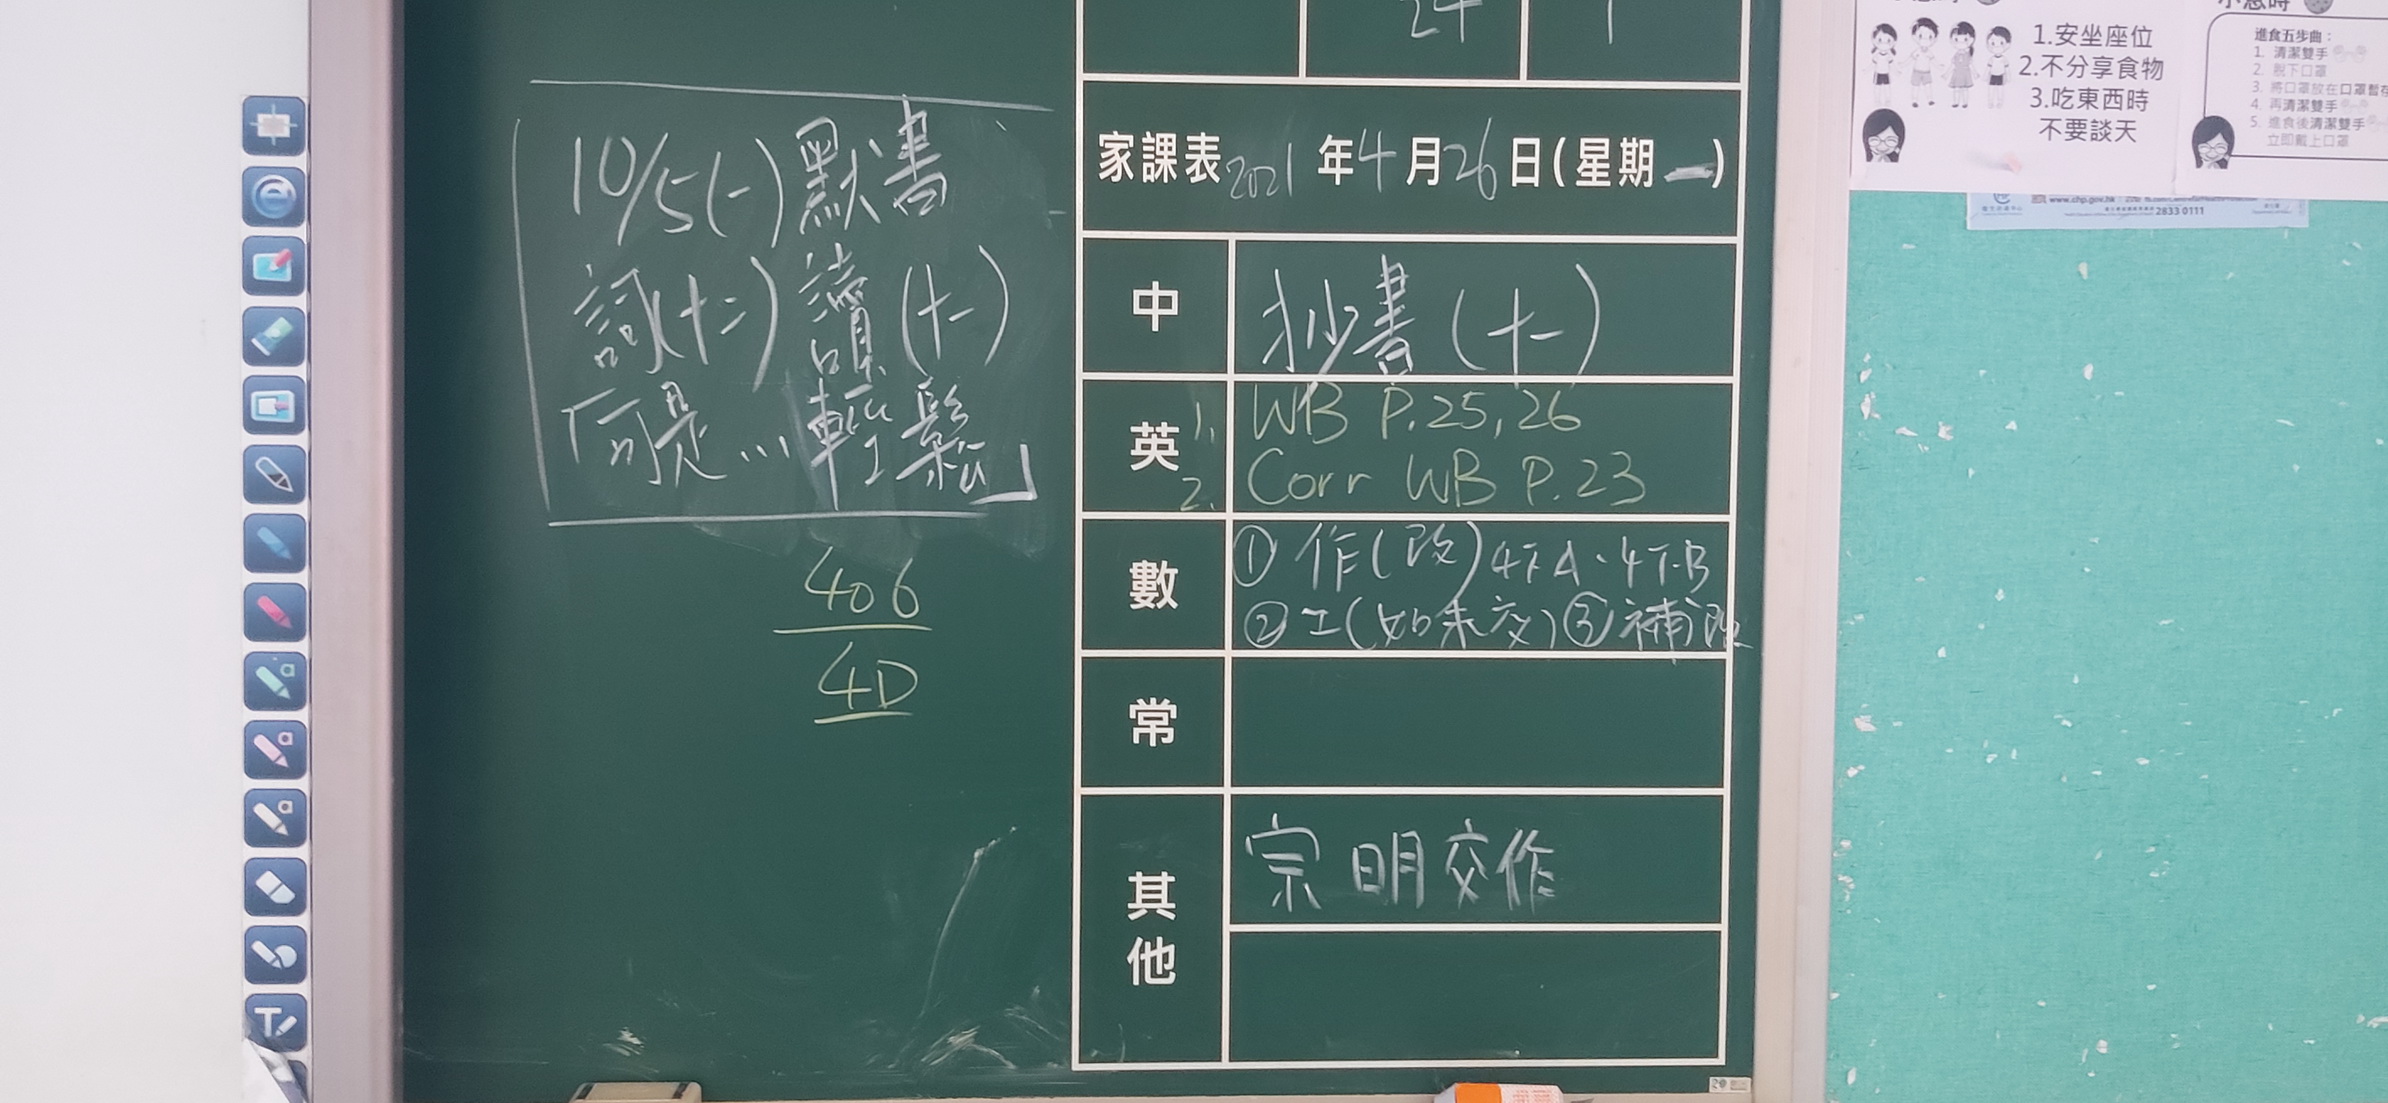 24
1
10/5(一)默書
詞(十二) 讀(十一)
「可是...輕鬆」
406
4D
家課表2021年4月26日(星期一)
中
抄書(十一)
英
1. WB P.25,26
2. Corr WB P.23
數
① 作(改)4下A、4下B
②工(如未交)③補改
常
其他
宗 明交作
1.安坐座位
2.不分享食物
3.吃東西時
不要談天
進食五步曲：
1. 清潔雙手
2. 脫下口罩
3. 將口罩放在口罩暫存
4. 再清潔雙手
5. 進食後清潔雙手
立即戴上口罩
www.chp.gov.hk
2833 0111
T